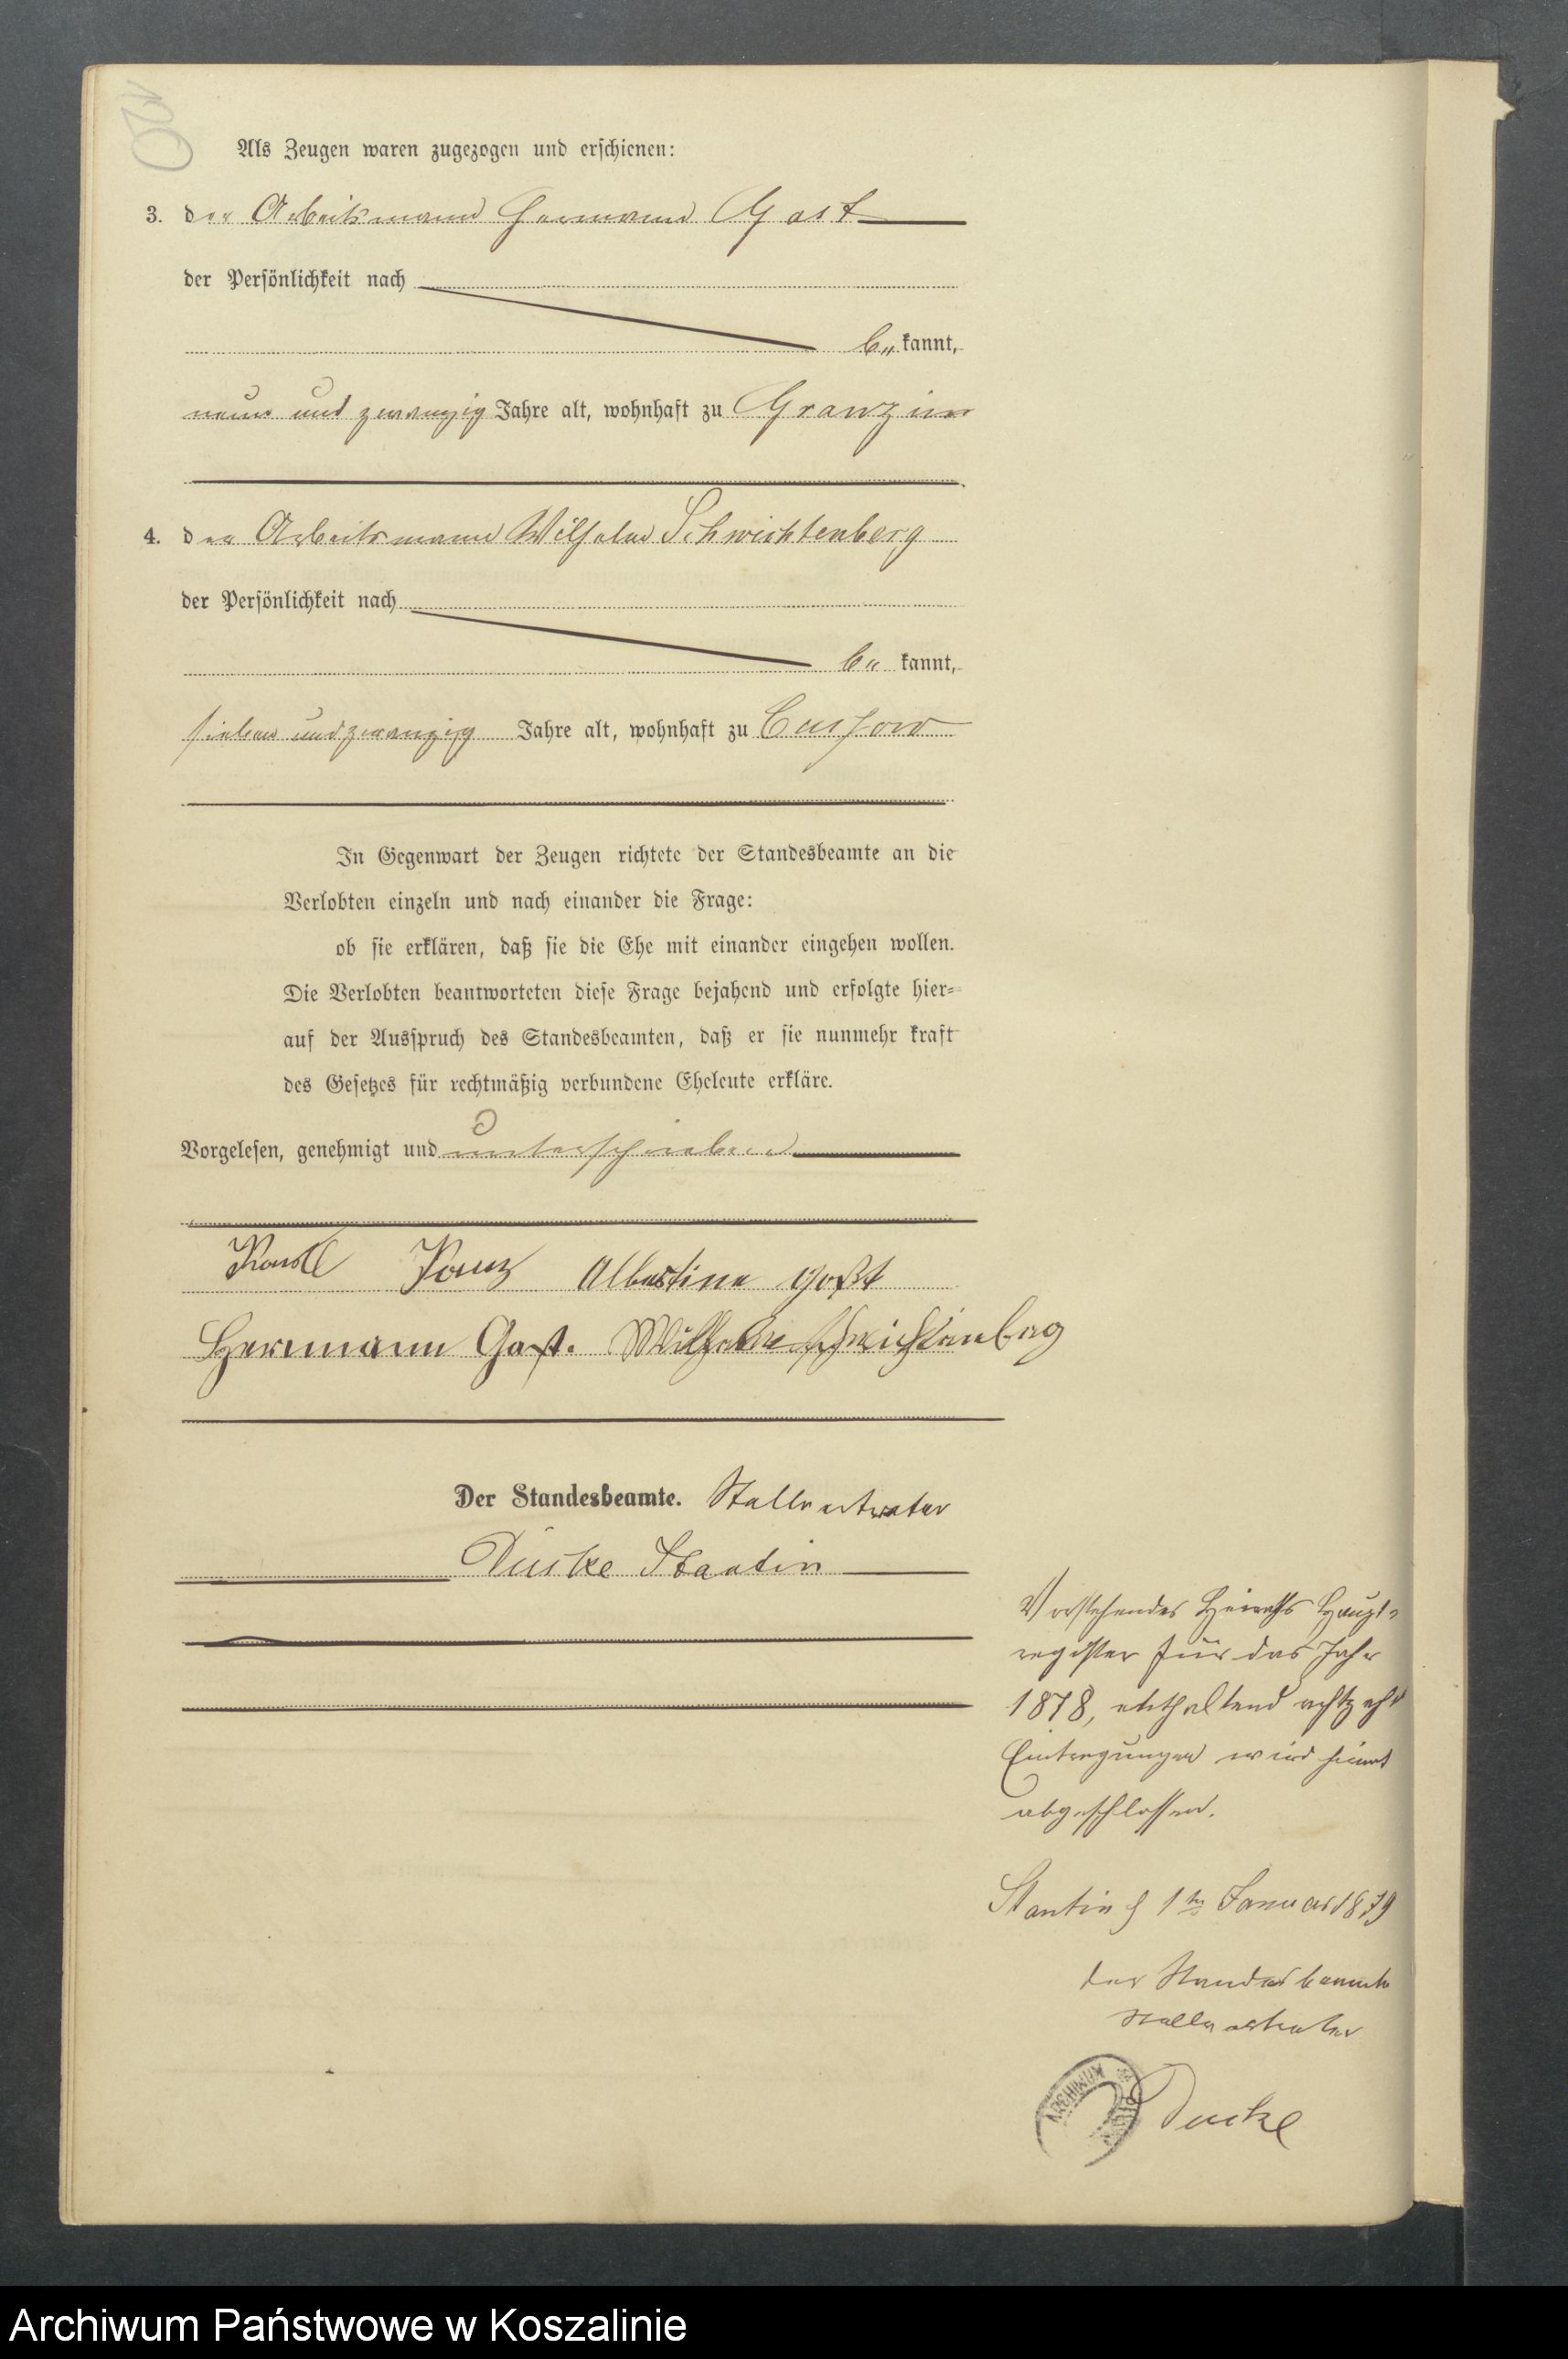 Als Zeugen waren zugezogen und erschienen:
3. der Arbeitsmann Hermann Gast
der Persönlichkeit nach
be kannt,
neun und zwanzig Jahre alt, wohnhaft zu Granzin
4. der Arbeitsmann Wilhelm Schwichtenberg
der Persönlichkeit nach
be kannt,
sieben und zwanzig Jahre alt, wohnhaft zu
In Gegenwart der Zeugen richtete der Standesbeamte an die
Verlobten einzeln und nach einander die Frage:
ob sie erklären, daß sie die Ehe mit einander eingehen wollen.
Die Verlobten beantworteten diese Frage bejahend und erfolgte hier-
auf der Ausspruch des Standesbeamten, daß er sie nunmehr kraft
des Gesetzes für rechtmäßig verbundene Eheleute erkläre.
Vorgelesen, genehmigt und unterschrieben
Albertine Gast
Hermann Gast. Wilhelm Schwichtenberg
Der Standesbeamte. Stellvertreter
Stantin
Vorstehendes Heiraths Haupt-
register für das Jahr
1878, enthaltend achtzehn
Eintragungen wird hiermit
abgeschlossen.
Stantin d 1ten Januar 1879
der Standesbeamte
Stellvertreter
ARCHIWUM
Archiwum Państwowe w Koszalinie